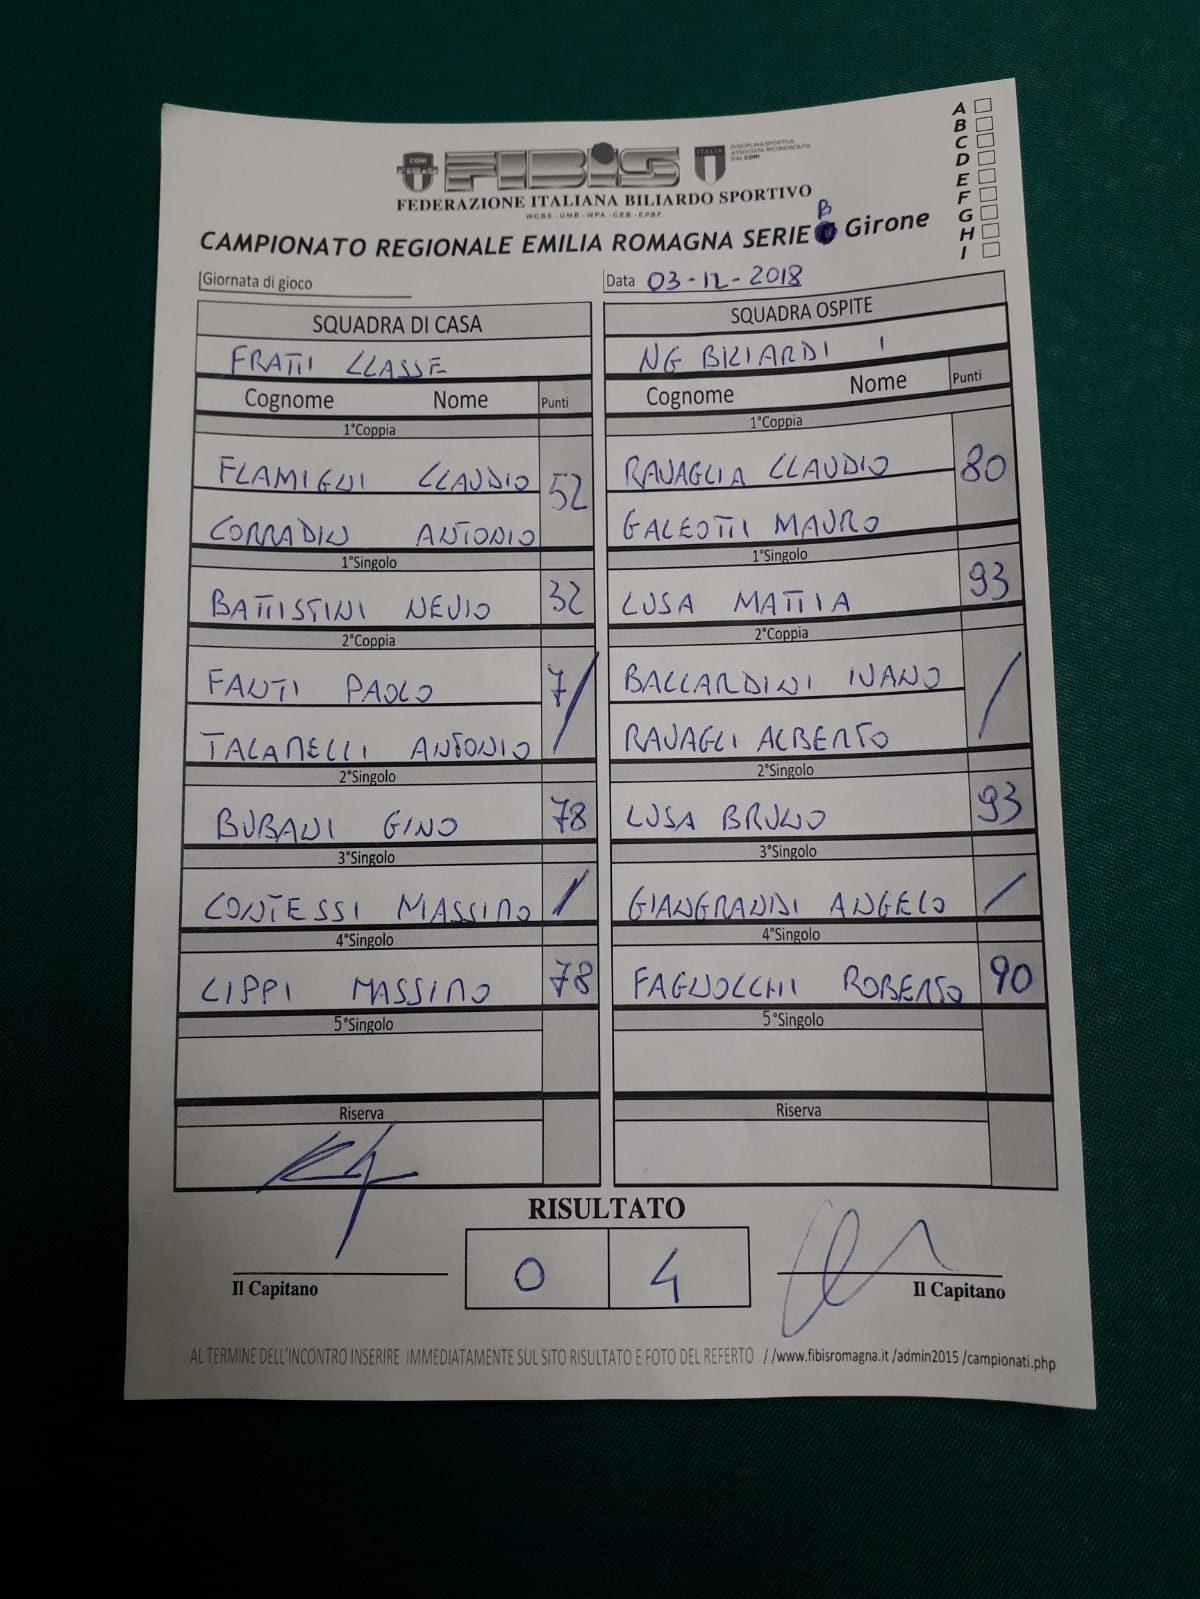 A
B
C
D
E
F
G
H
I
CONI
FIBIS
ITALIA
DISCIPLINA SPORTIVA
ASSOCIATA RICONOSCIUTA
DAL CONI
FEDERAZIONE ITALIANA BILIARDO SPORTIVO
W.C.B.S. - U.M.B. - W.P.A. - C.E.B. - E.P.B.F.
CAMPIONATO REGIONALE EMILIA ROMAGNA SERIE B Girone
Giornata di gioco
Data 03-12-2018
SQUADRA DI CASA SQUADRA OSPITE
FRATTI CLASSE NG BILIARDI 1
Cognome Nome Punti Cognome Nome Punti
1°Coppia 1°Coppia
FLAMIGNI CLAUDIO 52 RAVAGLIA CLAUDIO 80
CORRADIN ANTONIO GALEOTTI MAURO
1°Singolo 1°Singolo
BATTISTINI NEVIO 32 LUSA MATTIA 93
2°Coppia 2°Coppia
FANTI PAOLO 7/ BALLARDINI IVANO /
TALAMELLI ANTONIO RAVAGLI ALBERTO
2°Singolo 2°Singolo
BUBANI GINO 78 LUSA BRUNO 93
3°Singolo 3°Singolo
CONTESSI MASSIMO / GIANGRANDI ANGELO /
4°Singolo 4°Singolo
LIPPI MASSIMO 78 FAGNOCCHI ROBERTO 90
5°Singolo 5°Singolo
Riserva Riserva
RISULTATO
0 4
Il Capitano Il Capitano
AL TERMINE DELL'INCONTRO INSERIRE IMMEDIATAMENTE SUL SITO RISULTATO E FOTO DEL REFERTO //www.fibisromagna.it /admin2015 /campionati.php